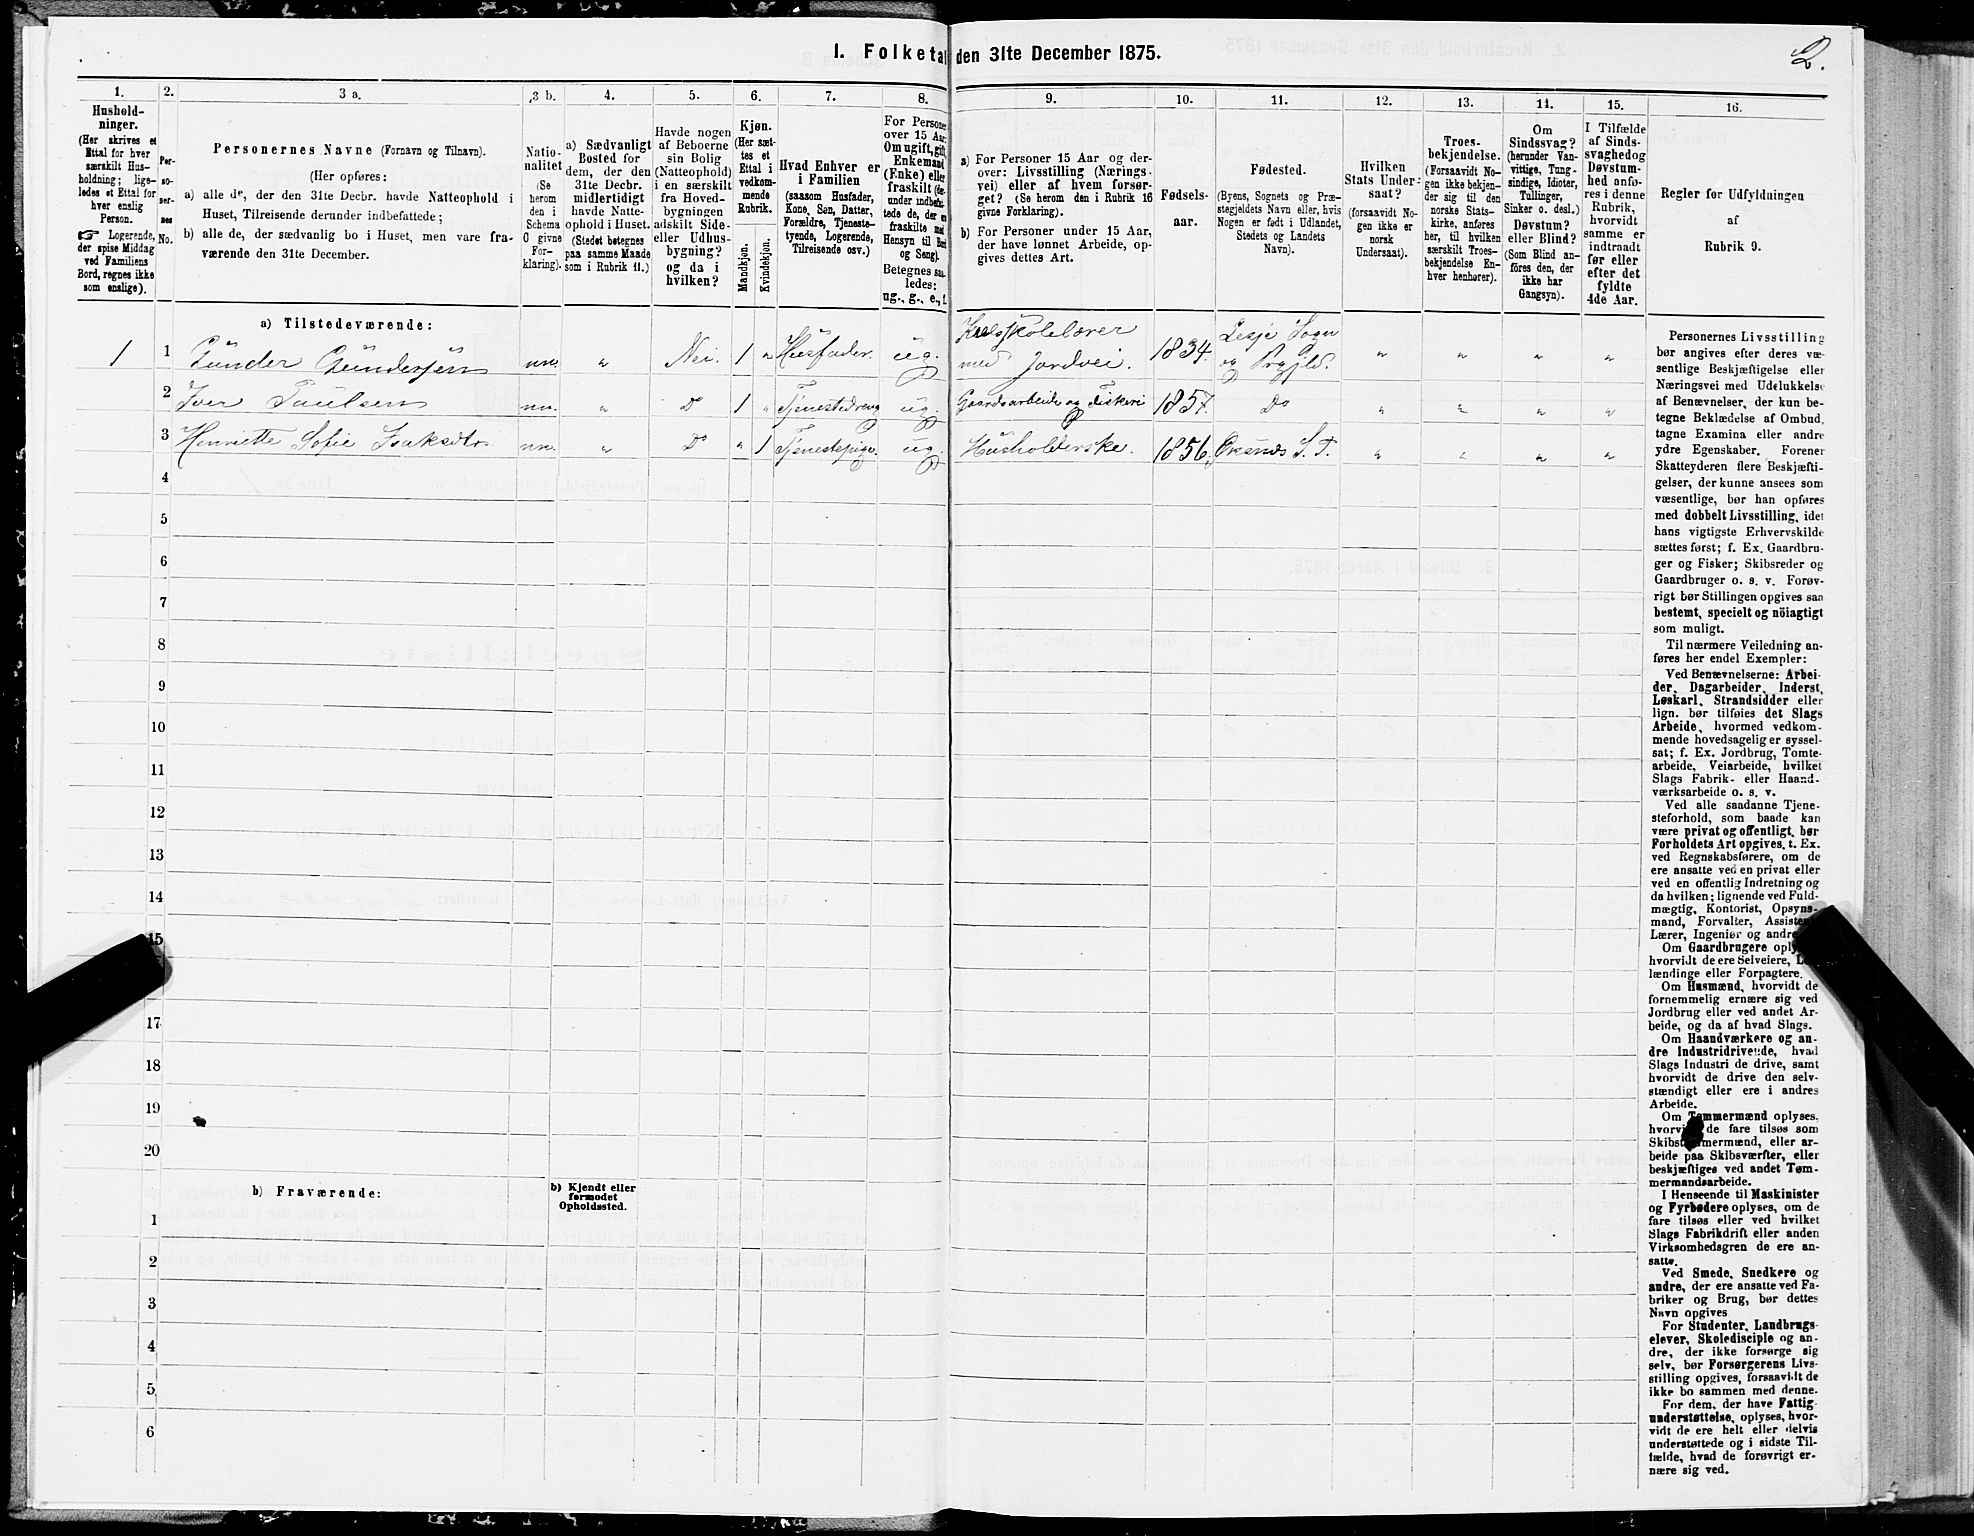 1. Folketal den 31te December 1875.
2.
1.
2.
3 a.
3 b.
4.
5.
6.
7.
8.
9.
10.
11.
12.
13.
14.
15.
16.
Hushold-
ninger.
(Her skrives et
Ettal for hver
særskilt Hus-
holdning; lige-
ledes et Ettal for
hver enslig
Person.
☞ Logerende,
der spise Middag
ved Familiens
Bord, regnes ikke
som enslige).
Per-
so-
ner-
nes
No.
Personernes Navne (Fornavn og Tilnavn).
(Her opføres:
a) alle de, der den 31te Decbr. havde Natteophold i
Huset, Tilreisende derunder indbefattede;
b) alle de, der sædvanlig bo i Huset, men vare fra-
værende den 31te December.
Natio-
nalitet
(Se
herom
den i
Schema
O givne
For-
klaring).
a) Sædvanligt
Bosted for
dem, der den
31te Decbr.
midlertidigt
havde Natte-
ophold i Huset.
(Stedet betegnes
paa samme Maade
som i Rubrik 11.)
Havde nogen
af Beboerne
sin Bolig
(Natteophold)
i en særskilt
fra Hoved-
bygningen
adskilt Side-
eller Udhus-
bygning?
og da i
hvilken?
Kjøn.
(Her sæt-
tes et
Ettal i
vedkom-
mende
Rubrik.
Mandkjøn.
Kvindekjøn.
Hvad Enhver er
i Familien
(saasom Husfader,
Kone, Søn, Datter,
Forældre, Tjeneste-
tyende, Logerende,
Tilreisende osv.)
For Personer
over 15 Aar:
Om ugift, gift,
Enkemand
(Enke) eller
fraskilt (der-
under indbefat-
tede de, der ere
fraskilte med
Hensyn til Bord
og Seng).
Betegnes saa-
ledes:
ug., g., e., f.
a) For Personer 15 Aar og der-
over: Livsstilling (Nærings-
vei) eller af hvem forsør-
get? (Se herom den i Rubrik 16
givne Forklaring).
b) For Personer under 15 Aar,
der have lønnet Arbeide, op-
gives dettes Art.
Fødsels-
aar.
Fødested.
(Byens, Sognets og Præ-
stegjeldets Navn eller, hvis
Nogen er født i Udlandet,
Stedets og Landets
Navn).
Hvilken
Stats Under-
saat?
(forsaavidt No-
gen ikke er
norsk
Undersaat).
Troes-
bekjendelse.
(Forsaavidt No-
gen ikke bekjen-
der sig til den
norske Stats-
kirke, anføres
her, til hvilken
særskilt Troes-
bekjendelse En-
hver henhører).
Om
Sindssvag?
(herunder Van-
vittige, Tung-
sindige, Idioter,
Tullinger,
Sinker o. desl.)
Døvstum?
eller Blind?
(Som Blind an-
føres den, der
ikke har
Gangsyn).
I Tilfælde
af Sinds-
svaghed og
Døvstum-
hed anfø-
res i denne
Rubrik,
hvorvidt
samme er
indtraadt
før eller
efter det
fyldte
4de Aar.
Regler for Udfyldningen
af
Rubrik 9.
a) Tilstedeværende:
1 1 Gunder Gundersen nn. „ Nei. 1 „ Husfader. ug. Kredsskolelærer med Jordvei. 1834. Lesje Sogn og Prgjld. „ „ „ „
2 Iver Paulsen nn. „ Do 1 „ Tjenestedreng ug. Gaardsarbeide og Fiskeri 1857. Do „ „ „ „
3 Henriette Sofie Isaksdtr. nn. „ Do „ 1 Tjenestepige. ug. Husholderske. 1856. Øksnes S. P. „ „ „ „
4
5
6
7
8
9
10
11
12
13
14
15
17
18
19
20
b) Fraværende:
b) Kjendt eller
formodet
Opholdssted.
1
2
3
4
5
6
Personernes Livsstilling
bør angives efter deres væ-
sentlige Beskjæftigelse eller
Næringsvei med Udelukkelse
af Benævnelser, der kun be-
tegne Beklædelse af Ombud,
tagne Examina eller andre
ydre Egenskaber. Forener
Skatteyderen flere Beskjæfti-
gelser, der kunne ansees som
væsentlige, bør han opføres
med dobbelt Livsstilling, idet
hans vigtigste Erhvervskilde
sættes først; f. Ex. Gaardbru-
ger og Fisker; Skibsreder og
Gaardbruger o. s. v. Forøv-
rigt bør Stillingen opgives saa
bestemt, specielt og nöiagtigt
som muligt.
Til nærmere Veiledning an-
føres her endel Exempler:
Ved Benævnelserne: Arbei-
der, Dagarbeider, Inderst,
Løskarl, Strandsidder eller
lign. bør tilføies det Slags
Arbeide, hvormed vedkom-
mende hovedsagelig er syssel-
sat; f. Ex. Jordbrug, Tomte-
arbeide, Veiarbeide, hvilket
Slags Fabrik- eller Haand-
værksarbeide o. s. v.
Ved alle saadanne Tjene-
steforhold, som baade kan
være privat og offentligt, bør
Forholdets Art opgives, t. Ex.
ved Regnskabsførere, om de
ere ansatte ved en privat eller
ved en offentlig Indretning og
da hvilken; lignende ved Fuld-
mægtig, Kontorist, Opsyns-
mand, Forvalter, Assistent,
Lærer, Ingeniør og andre.
Om Gaardbrugere oply-
hvorvidt de ere Selveiere,
lændinge eller Forpagtere.
Om Husmænd, hvorvidt de
fornemmelig ernære sig ved
Jordbrug eller ved andet Ar-
beide, og da af hvad Slags.
Om Haandværkere og an-
dre Industridrivende, hvad
Slags Industri de drive, samt
hvorvidt de drive den selv-
stændigt eller ere i andres
Arbeide.
Om Tømmermænd oplyses,
hvorvidt de fare tilsøs som
Skibstømmermænd, eller ar-
beide paa Skibsværfter, eller
beskjæftiges ved andet Tøm-
mermandsarbeide.
I Henseende til Maskinister
og Fyrbødere oplyses, om de
fare tilsøs eller ved hvilket
Slags Fabrikdrift eller anden
Virksomhedsgren de ere an-
satte.
Ved Smede, Snedkere og
andre, der ere ansatte ved Fa-
briker og Brug, bør dettes
Navn opgives
For Studenter, Landbrugs-
elever, Skoledisciple og an-
dre, der ikke forsørge sig
selv, bør Forsørgerens Livs-
stilling opgives, forsaavidt de
ikke bo sammen med denne.
For dem, der have Fattig-
understøttelse, oplyses, hvor-
vidt de ere helt eller delvis
understøttede og i sidste Til-
fælde, hvad de forøvrigt er-
nære sig ved.